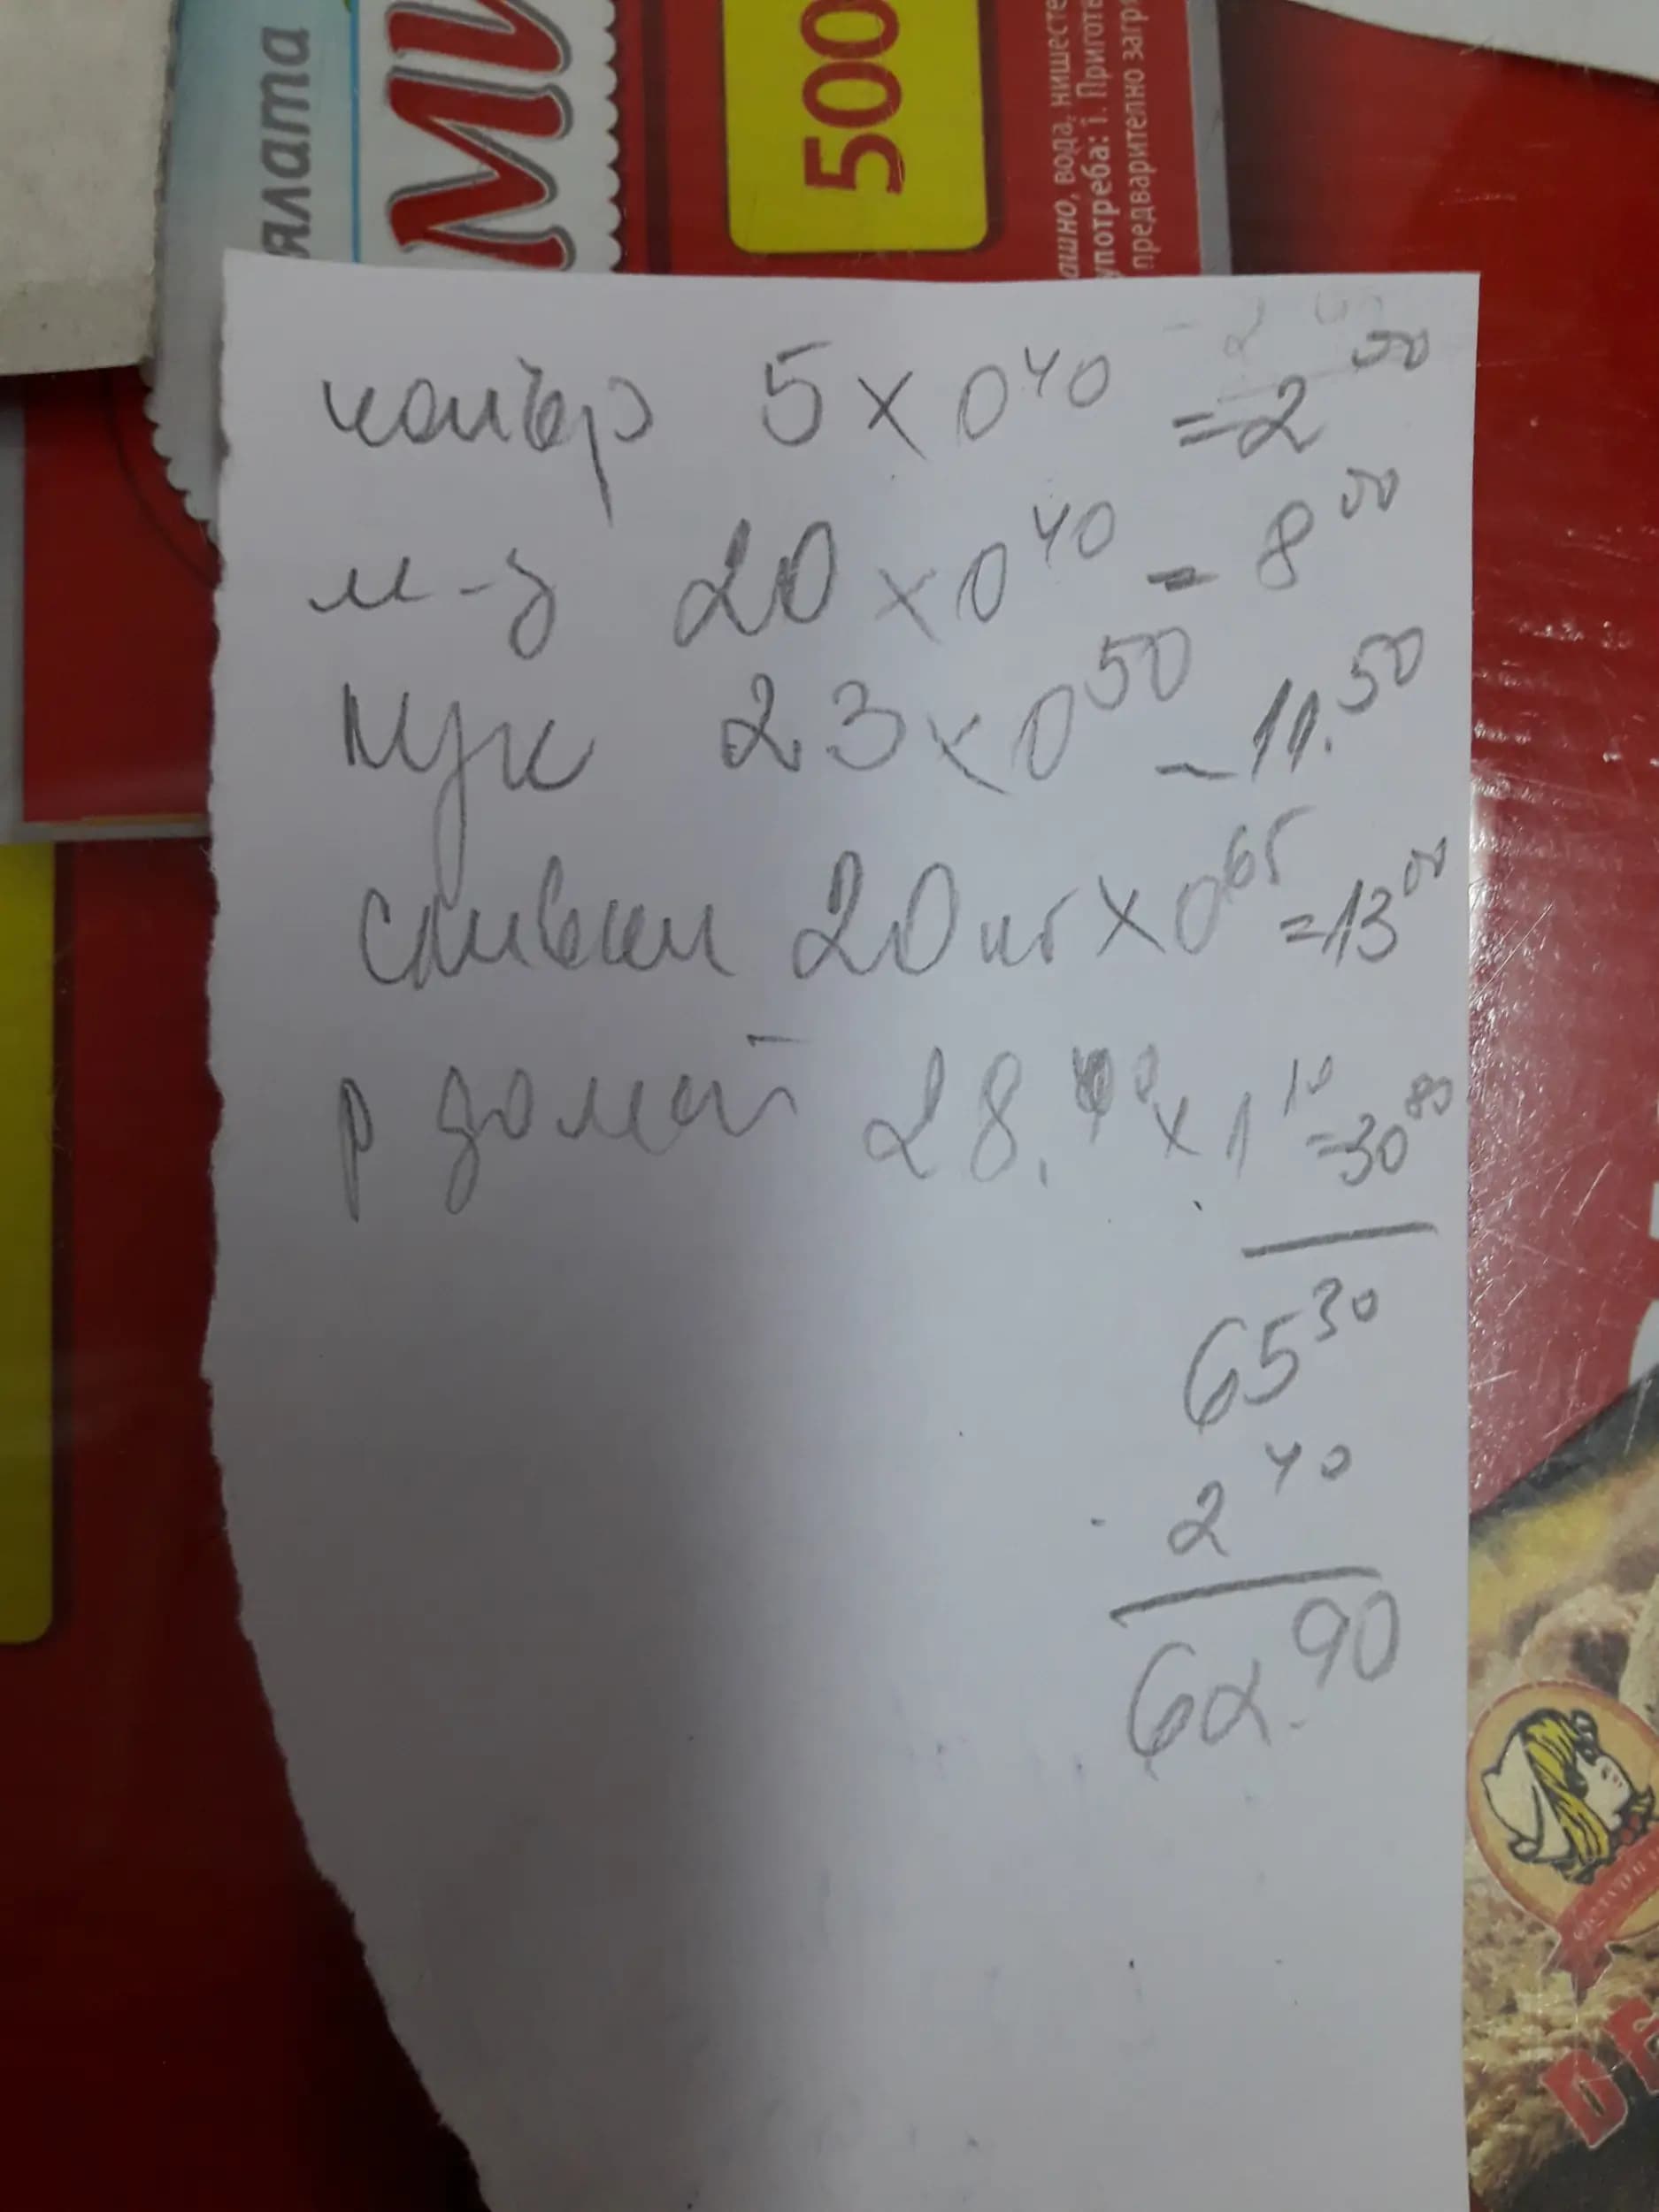 ялата
МИ
500
ашно, вода, нишесте
употреба: 1. Пригот
предварително загр
5 x 0 40 = 2 00
м-з 20 x 0 40 = 8 00
лук 23 x 0 50 - 11.50
сливи 20 кг x 0 65 = 13 00
р домат 28. x 1 10 = 30 80
65 30
2 40
62.90